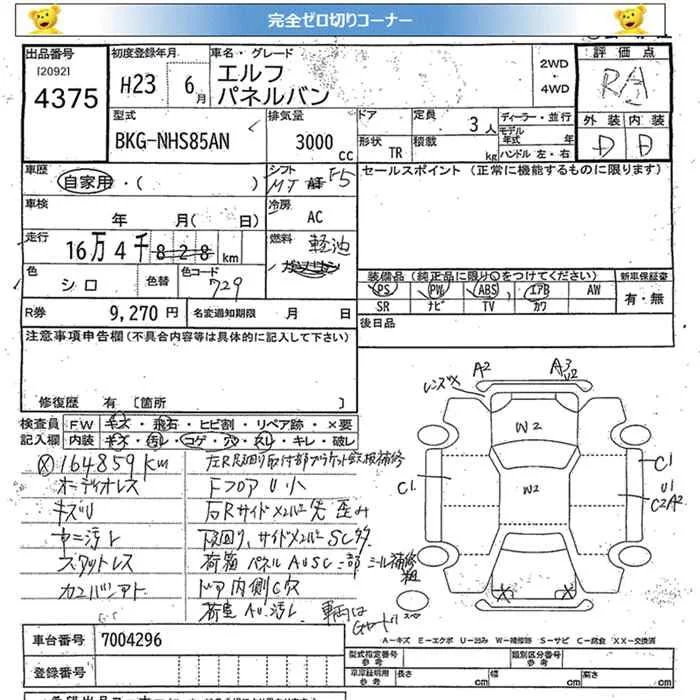 完全ゼロ切りコーナー
出品番号
120921
4375
初度登録年月
H23 6月
車名・グレード
エルフ
パネルバン
2WD
・
4WD
評価点
RA
型式
BKG-NHS85AN
排気量
3000
cc
ドア
定員
3人
形状
TR
積載
kg
ディーラー・並行
モデル
年式 年
ハンドル 左・右
外装 内装
D D
車歴
自家用・( )
シフト
MT F5
セールスポイント (正常に機能するものに限ります)
車検
年 月( 日)
冷房
AC
走行
16万4千828km
燃料
軽油
色
シロ
色替
色コード
729
装備品(純正品に限り○をつけてください)
新車保証書
PS PW ABS エアB AW
SR ナビ TV カワ
有・無
R券
9,270円
名変通知期限 月 日
後日品
注意事項申告欄(不具合内容等は具体的に記入して下さい)
修復歴 有 [箇所 ]
検査員
記入欄
FW キズ・飛石・ヒビ割・リペア跡・×要
内装 キズ・汚レ・コゲ・穴・スレ・キレ・破レ
164859km
オーディオレス
キズU
ヤニ汚レ
スタットレス
Fフロア U 小
右Rサイドメンバー先 歪み
下回り、サイドメンバー SC多
荷箱 パネル AUSC
ドア内側C穴
荷室 AU、汚レ
車両は
A2
A3
レンズX
W2
W2
C1
C1
U1
C2A2
X X
A-キズ E-エクボ U-凹み W-補修跡 S-サビ C-腐食 XX-交換済
車台番号
7004296
登録番号
型式指定番号
参考
類別区分番号
参考
車庫証明用
参考
長さ cm
幅 cm
高さ cm